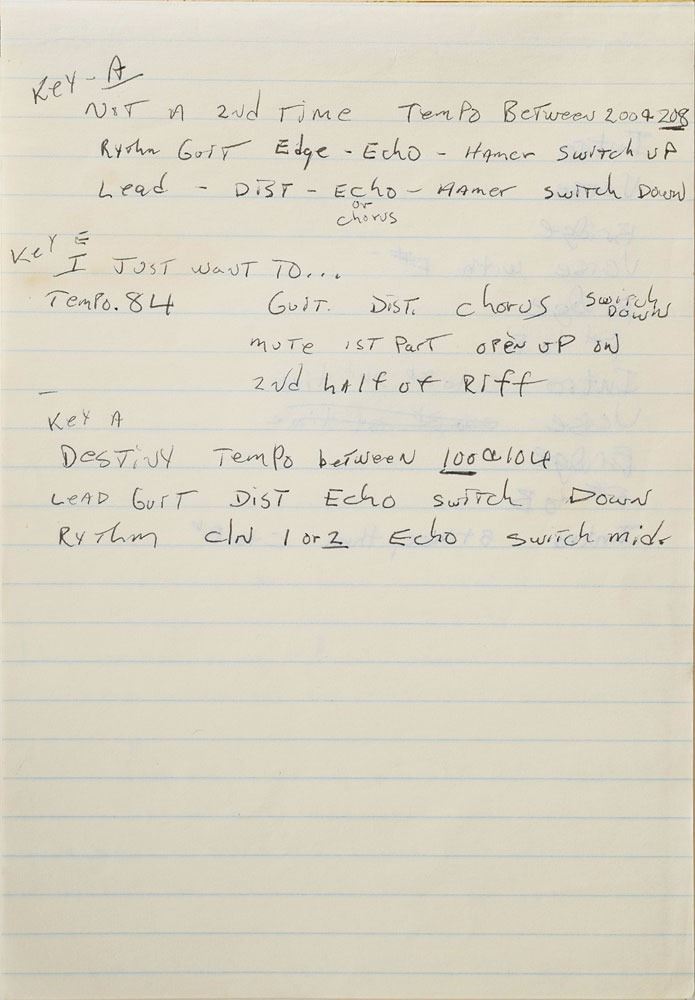 Key - A
Not A 2nd Time Tempo Between 200 & 208
Rythm Guit Edge - Echo - Hamer switch up
Lead - Dist - Echo - Hamer switch Down
or
chorus
Key E
I Just want To...
Tempo. 84 Guit. Dist. chorus switch
Down
mute 1st Part open up on
2nd half of Riff
Key A
Destiny Tempo between 100 & 104
Lead Guit Dist Echo switch Down
Rythm cln 1 or 2 Echo switch mid.